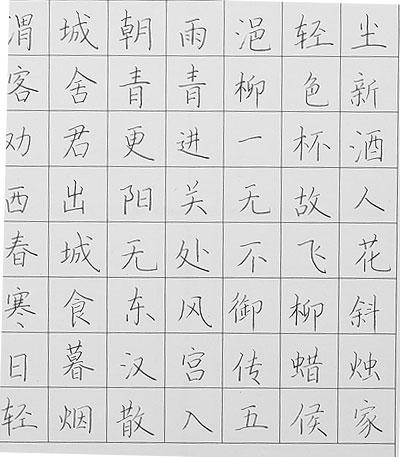 渭城朝雨浥轻尘
客舍青青柳色新
劝君更进一杯酒
西出阳关无故人
春城无处不飞花
寒食东风御柳斜
日暮汉宫传蜡烛
轻烟散入五侯家